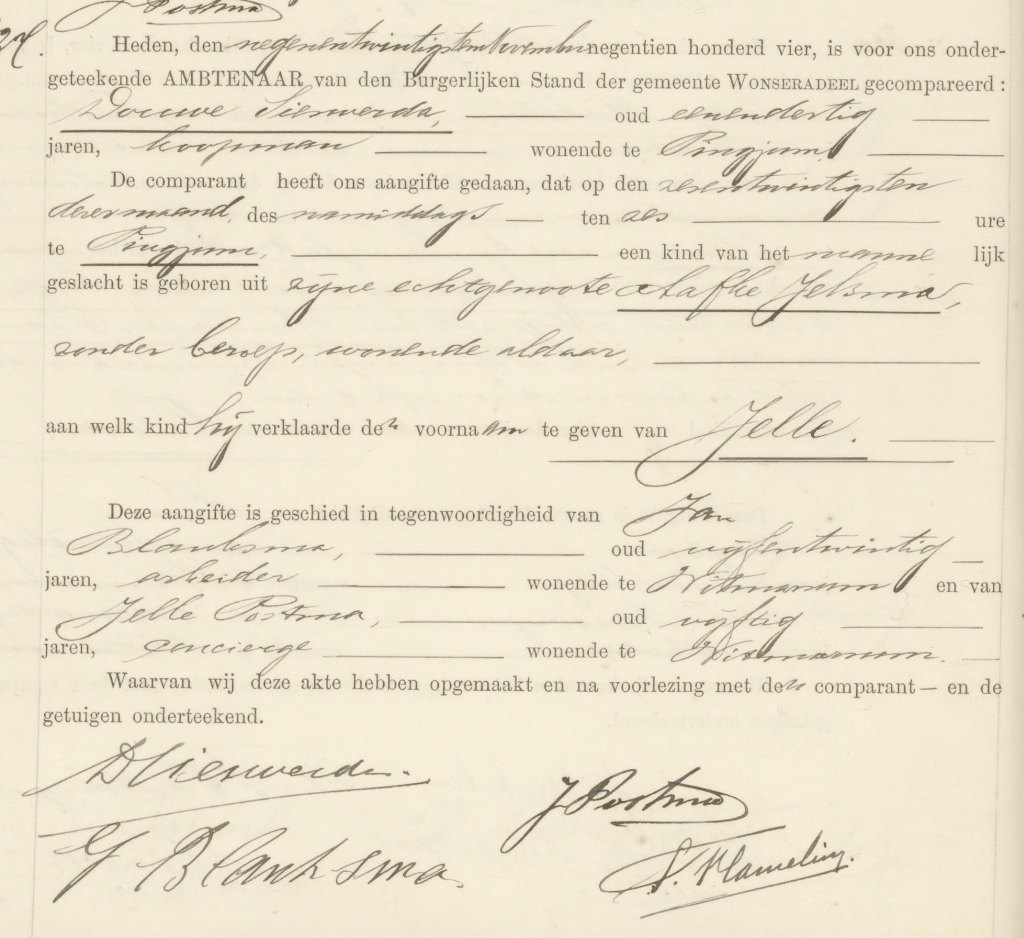 J Postma
Heden, den negenentwintigsten November negentien honderd vier, is voor ons onder-
geteekende AMBTENAAR van den Burgerlijken Stand der gemeente WONSERADEEL gecompareerd:
Douwe Sierwerda, oud eenendertig
jaren, koopman wonende te Pingjum,
De comparant heeft ons aangifte gedaan, dat op den zesentwintigsten
dezer maand, des namiddags ten zes ure
te Pingjum, een kind van het manne lijk
geslacht is geboren uit zijne echtgenoote Aafke Jelsma,
zonder beroep, wonende aldaar,
aan welk kind hij verklaarde den voornaam te geven van Jelle.
Deze aangifte is geschied in tegenwoordigheid van Jan
Blanksma, oud vijfentwintig
jaren, arbeider wonende te Witmarsum en van
Jelle Postma, oud vijftig
jaren, concierge wonende te Witmarsum.
Waarvan wij deze akte hebben opgemaakt en na voorlezing met den comparant — en de
getuigen onderteekend.
D Sierwerda.
J Postma
J Blanksma.
S. Flameling.